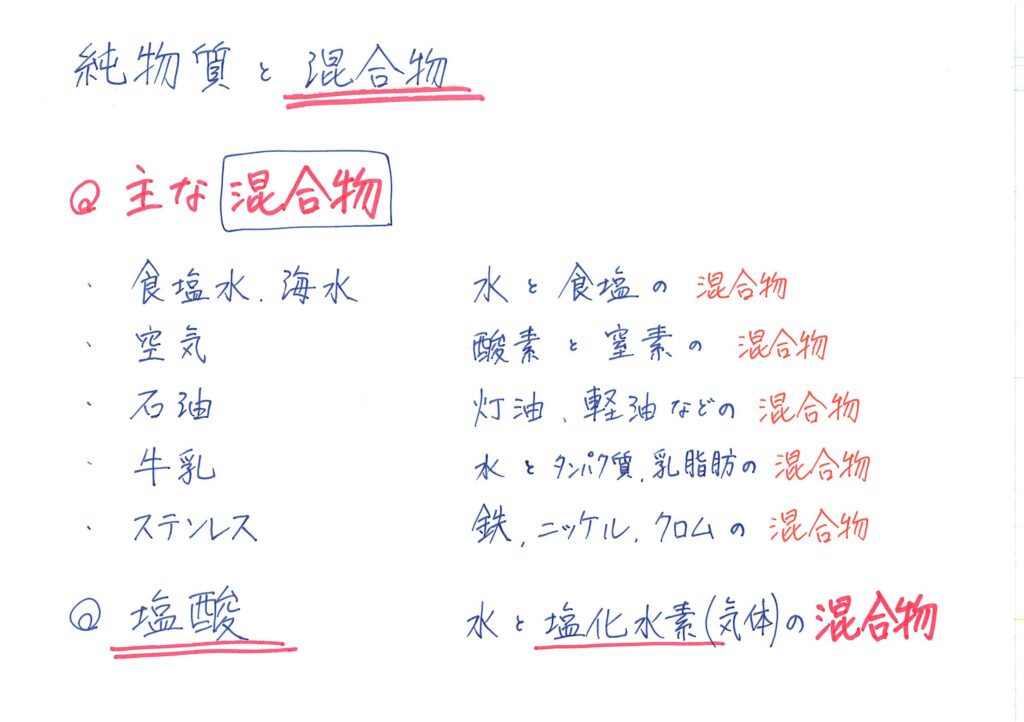 純物質と混合物
◎ 主な混合物
・ 食塩水、海水 水と食塩の混合物
・ 空気 酸素と窒素の混合物
・ 石油 灯油、軽油などの混合物
・ 牛乳 水とタンパク質、乳脂肪の混合物
・ ステンレス 鉄、ニッケル、クロムの混合物
◎ 塩酸 水と塩化水素(気体)の混合物